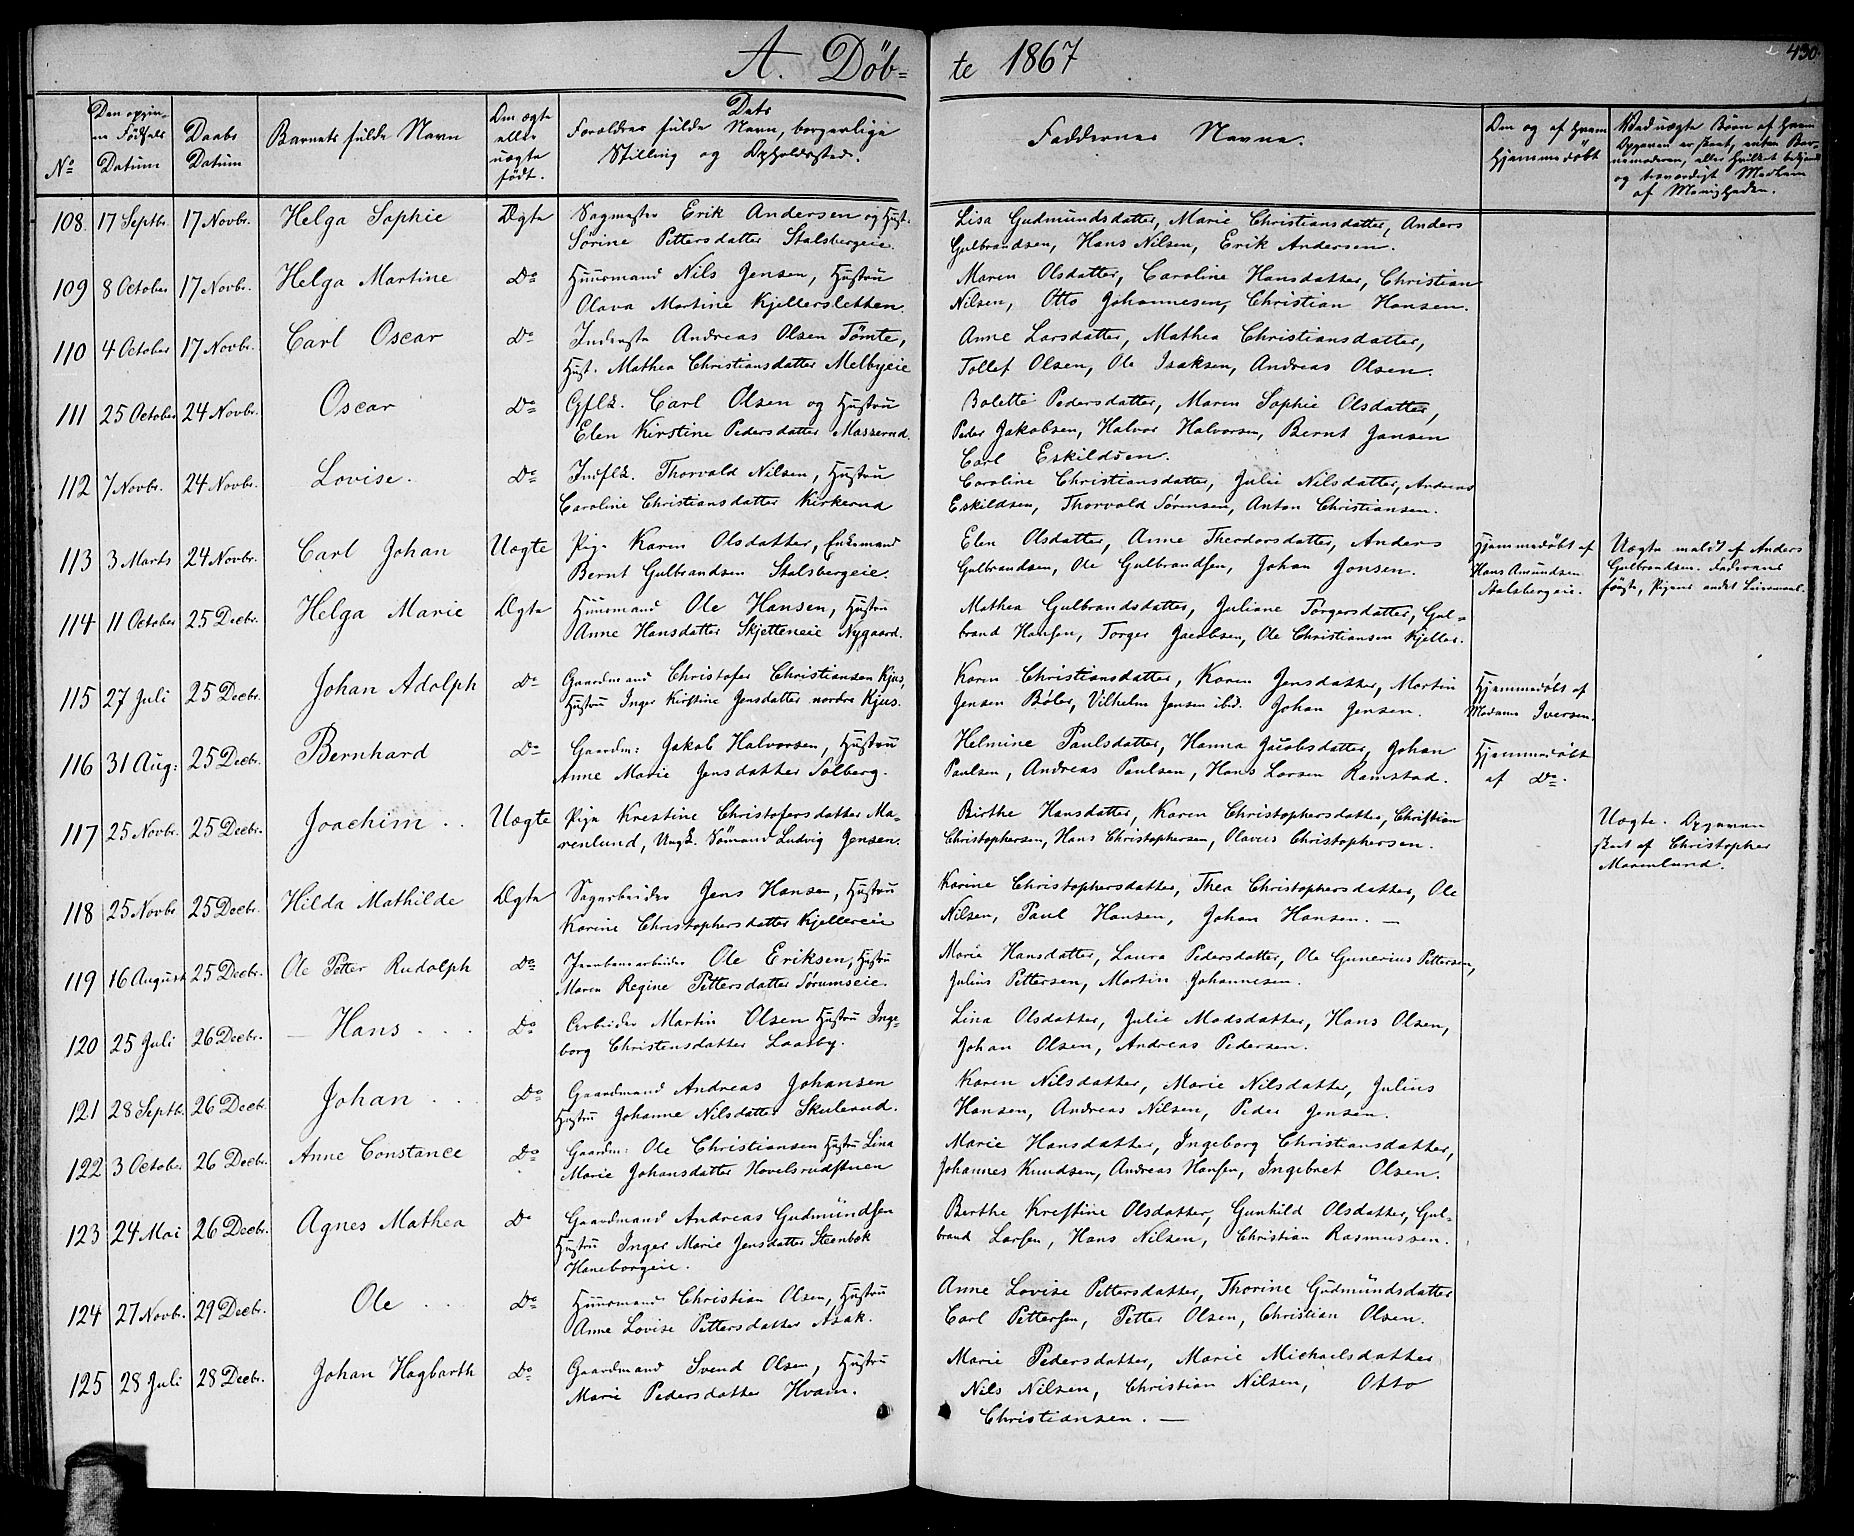 A. Döb=
te 1867
430
No
Den opgivne Fødsels Datum
Daabs Datum
Barnets fulde Navn
Om ægte eller uægte født.
Dets Forældres fulde Navn, borgerlige Stilling og Opholdssted.
Faddernes Navne.
Om og af hvem Hjemmedøbt
Ved uægte Børn af hvem Opgaven er skeet, enten Barnemoderen, eller hvilket bekjendt og troværdigt Medlem af Menigheden.
108. 17 Septbr. 17 Novbr. Helga Sophie Ægte Sagmester Erik Andersen og Hust:
Sørine Pettersdatter Stalsbergeie.
Lisa Gudmundsdatter, Marie Christiansdatter, Anders
Gulbrandsen, Hans Nilsen, Erik Andersen.
109 8 October 17 Novbr. Helga Martine Do Huusmand Nils Jensen, Hustru
Olava Martine Kjellersletten.
Maren Olsdatter, Caroline Hansdatter, Christian
Nilsen, Otto Johannesen, Christian Hansen.
110 4 October 17 Novbr. Carl Oscar Do Inderste Andreas Olsen Tømte,
Hust. Mathea Christiansdatter Melbyeie
Anne Larsdatter, Mathea Christiansdatter,
Tollef Olsen, Ole Isaksen, Andreas Olsen.
111 25 October 24 Novbr. Oscar Do Gflk. Carl Olsen og Hustru
Elen Kirstine Pedersdatter Masserud.
Bolette Pedersdatter, Maren Sophie Olsdatter,
Peder Jakobsen, Halvor Halvorsen, Bernt Jansen
Carl Eskildsen.
112 7 Novbr. 24 Novbr. Lovise. Do Indflk. Thorvald Nilsen, Hustru
Caroline Christiansdatter Kirkerud
Caroline Christiansdatter, Julie Nilsdatter, Andreas
Eskildsen, Thorvald Sørensen, Anton Christiansen.
113 3 Marts 24 Novbr. Carl Johan Uægte Pige Karen Olsdatter, Enkemand
Bernt Gulbrandsen Stalsbergeie.
Elen Olsdatter, Anne Theodorsdatter, Anders
Gulbrandsen, Ole Gulbrandsen, Johan Jonsen.
Hjemmedøbt af
Hans Amundsen
Stalsbergeie.
Uægte meldt af Anders
Gulbrandsen. Faderens
første, Pigens andet Leiermaal.
114 11 October 25 Decbr. Helga Marie Ægte Huusmand Ole Hansen, Hustru
Anne Hansdatter Skjetteneie Nygaard.
Mathea Gulbrandsdatter, Juliane Torgersdatter, Gul=
brand Hansen, Torger Jacobsen, Ole Christiansen Kjeller.
115 27 Juli 25 Decbr. Johan Adolph Do Gaardmand Christofer Christiansen Kjus,
Hustru Inger Kirstine Jensdatter nordre Kjus.
Karen Christiansdatter, Karen Jensdatter, Martin
Jensen Bøler, Vilhelm Jensen ibid. Johan Jensen.
Hjemmedøbt af
Madame Iversen.
116 31 Aug: 25 Decbr. Bernhard Do Gaardm: Jakob Halvorsen, Hustru
Anne Marie Jensdatter Solberg.
Helmine Paulsdatter, Hanna Jacobsdatter, Johan
Paulsen, Andreas Paulsen, Hans Larsen Ramstad.
Hjemmedøbt
af Do.
117 25 Novbr. 25 Decbr. Joachim Uægte Pige Krestine Christofersdatter Ma=
renlund, Ungk. Sømand Ludvig Jensen.
Birthe Hansdatter, Karen Christophersdatter, Christian
Christophersen, Hans Christophersen, Olavus Christophersen.
Uægte. Opgaven
skeet af Christopher
Marenlund.
118 25 Novbr 25 Decbr. Hilda Mathilde Ægte Sagarbeider Jens Hansen, Hustru
Karine Christophersdatter Kjellereie
Karine Christophersdatter, Thea Christophersdatter, Ole
Nilsen, Paul Hansen, Johan Hansen. —
119 16 August 25 Decbr. Ole Petter Rudolph Do Jernbanearbeider Ole Eriksen, Hustru
Maren Regine Pettersdatter Sørumseie.
Marie Hansdatter, Laura Pedersdatter, Ole Gunerius Pettersen,
Julius Pettersen, Martin Johannesen.
120 25 Juli 26 Decbr. Hans Do Arbeider Martin Olsen Hustru Inge=
borg Christensdatter Laasby.
Lina Olsdatter, Julie Madsdatter, Hans Olsen,
Johan Olsen, Andreas Pedersen.
121 28 Septbr. 26 Decbr. Johan Do Gaardmand Andreas Johansen
Hustru Johanne Nilsdatter Skulerud.
Karen Nilsdatter, Marie Nilsdatter, Julius
Hansen, Andreas Nilsen, Peder Jensen.
122 3 October 26 Decbr. Anne Constance Do Gaardm: Ole Christiansen Hustru Lina
Marie Johansdatter Hovelsrudstuen
Marie Hansdatter, Ingeborg Christiansdatter,
Johannes Knudsen, Andreas Hansen, Ingebret Olsen.
123 24 Mai 26 Decbr. Agnes Mathea Do Gaardmand Andreas Gudmundsen
Hustru Inger Marie Jensdatter Steenbok
Haneborgeie.
Berthe Krestine Olsdatter, Gunhild Olsdatter, Gul=
brand Larsen, Hans Nilsen, Christian Rasmussen.
124 27 Novbr. 29 Decbr. Ole Do Huusmand Christian Olsen, Hustru
Anne Lovise Pettersdatter Asak.
Anne Lovise Pettersdatter, Thorine Gudmundsdatter
Carl Pettersen, Petter Olsen, Christian Olsen.
125 28 Juli 28 Decbr. Johan Hagbarth Do Gaardmand Svend Olsen, Hustru
Marie Pedersdatter Hvam.
Marie Pedersdatter, Marie Michaelsdatter
Nils Nilsen, Christian Nilsen, Otto
Christiansen. —